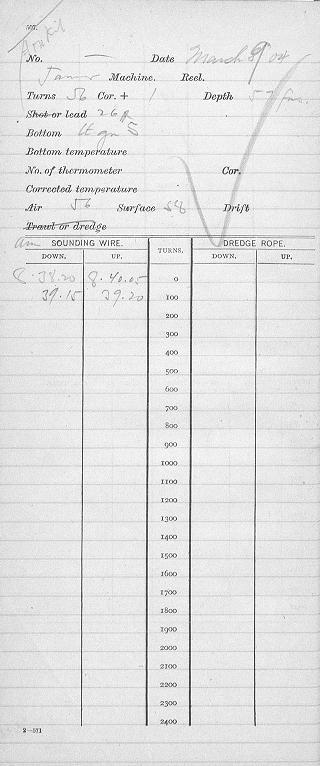 No. — Date March 8/04
Tanner Machine. Reel.
Turns 56 Cor. + 1 Depth 57 fms.
Shot or lead 26 #
Bottom lt gn S
Bottom temperature
No. of thermometer Cor.
Corrected temperature
Air 56 Surface 58 Drift
Trawl or dredge
am SOUNDING WIRE. TURNS. DREDGE ROPE.
DOWN. UP. DOWN. UP.
8.38.20 8.40.05 0
39.15 39.20 100
200
300
400
500
600
700
800
900
1000
1100
1200
1300
1400
1500
1600
1700
1800
1900
2000
2100
2200
2300
2400
2—571